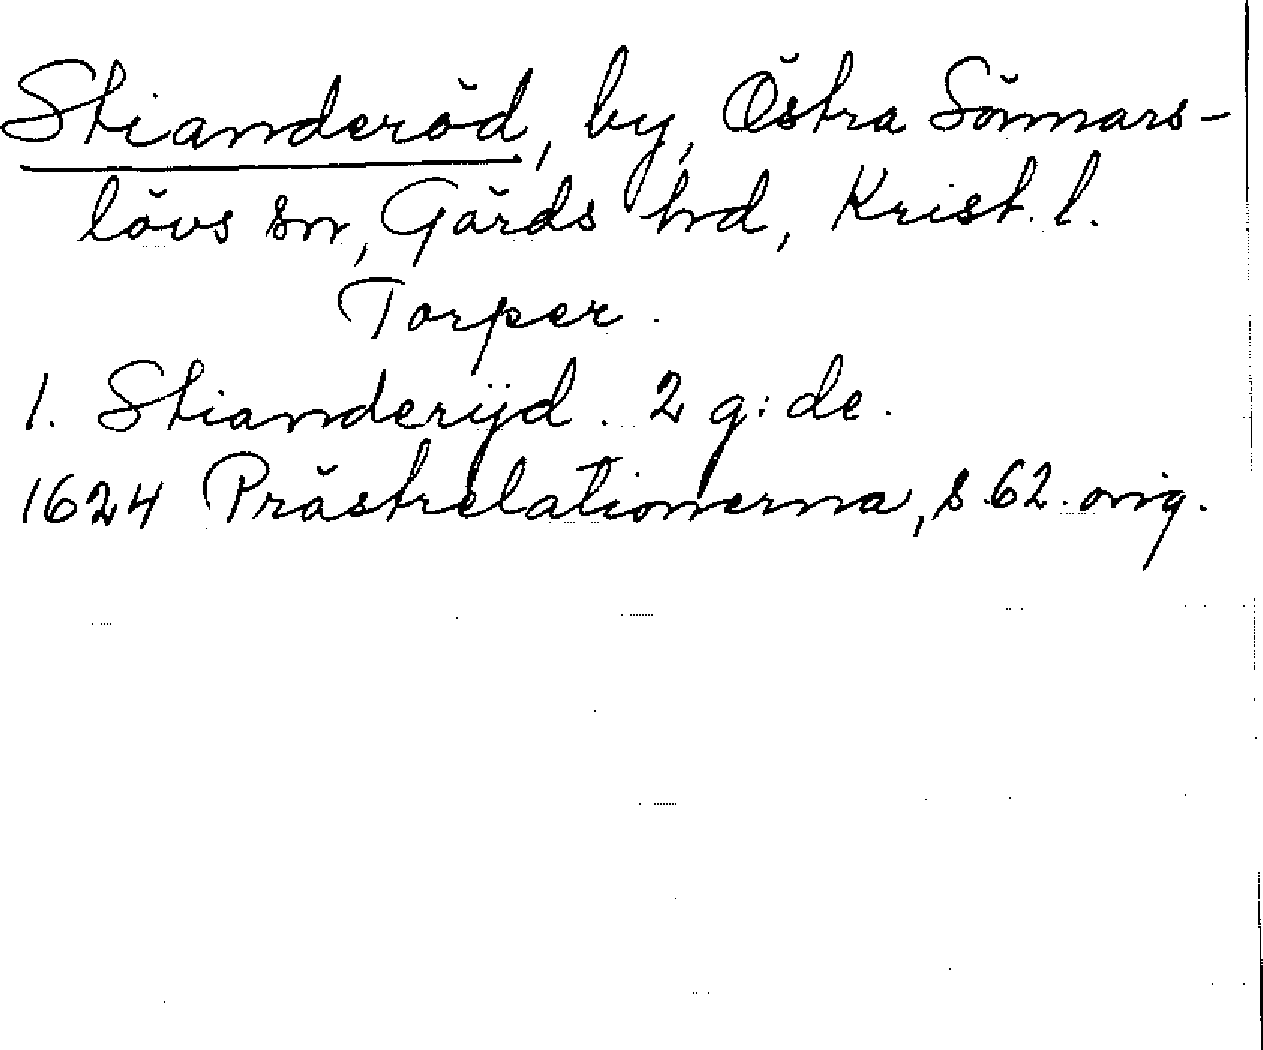 Stianderöd, by, Östra Sönnars-
lövs sn, Gärds hd, Krist. l.
Torper.
1. Stianderÿd. 2 g:de.
1624 Prästrelationerna, s. 62. orig.